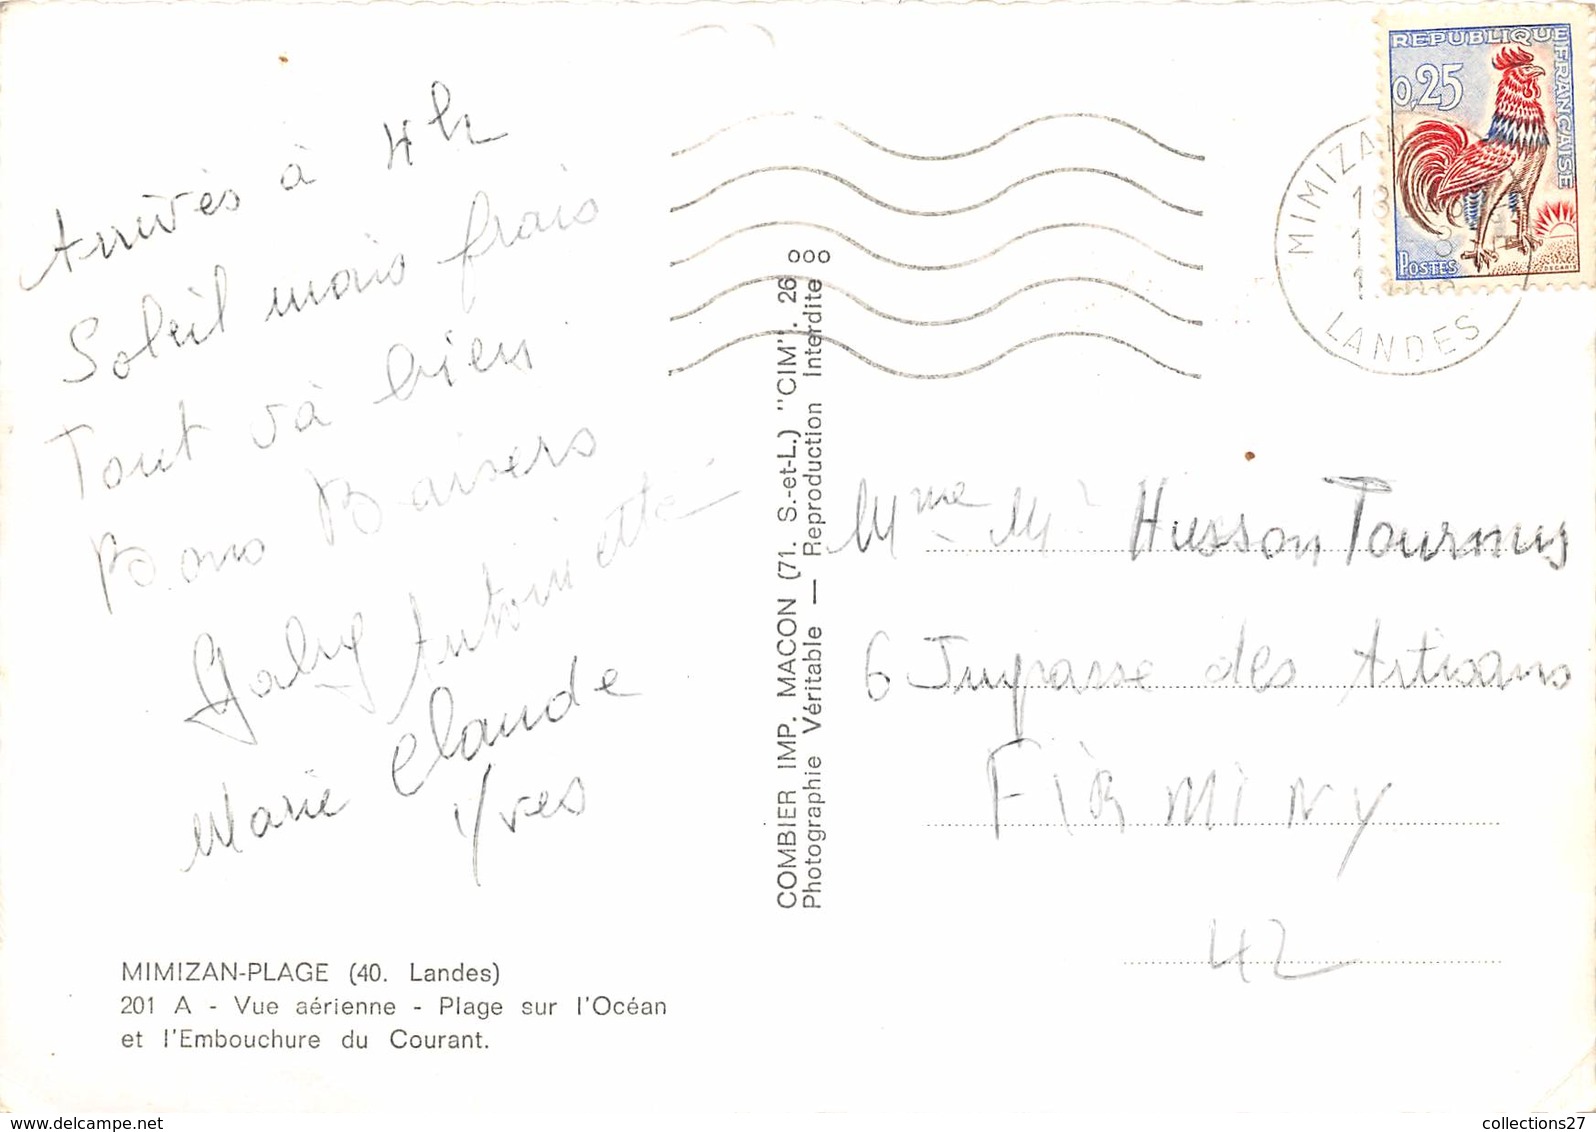 Arrivés à 4h
Soleil mais frais
Tout và bien
Bons Baisers
Gaby Antoinette
Marie Claude
Yves
MIMIZAN-PLAGE (40. Landes)
201 A - Vue aérienne - Plage sur l'Océan
et l'Embouchure du Courant.
COMBIER IMP. MACON (71. S.-et-L.) "CIM". 26 ooo
Photographie Véritable — Reproduction Interdite
REPUBLIQUE FRANÇAISE
0,25
POSTES
DECARIS
MIMIZAN
LANDES
Mme Mr Husson Tournus
6 Impasse des Artisans
FIRMINY
42
collections27